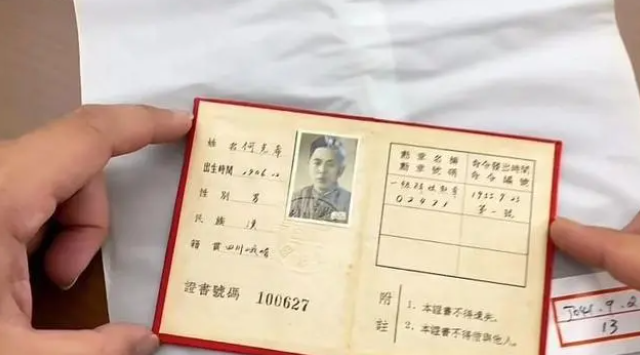 姓名 何克希
出生時間 1906.12
性別 男
民族 漢
籍貫 四川峨嵋
證書號碼 100627
勳章名稱
勳章號碼
命令發出時間
命令編號
一級
02421
1955.9.23
第一號
附註
1. 本證書不得遺失。
2. 本證書不得借與他人。
13